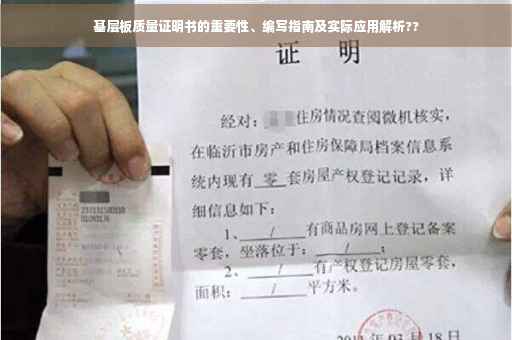 基层板质量证明书的重要性、编写指南及实际应用解析??
证 明
经对： 住房情况查阅微机核实，
在临沂市房产和住房保障局档案信息系
统内现有 零 套房屋产权登记记录，详
细信息如下：
1、 / 有商品房网上登记备案
零套，坐落位于： / ；
2、 / 有产权登记房屋零套，
面积： / 平方米。
月18日